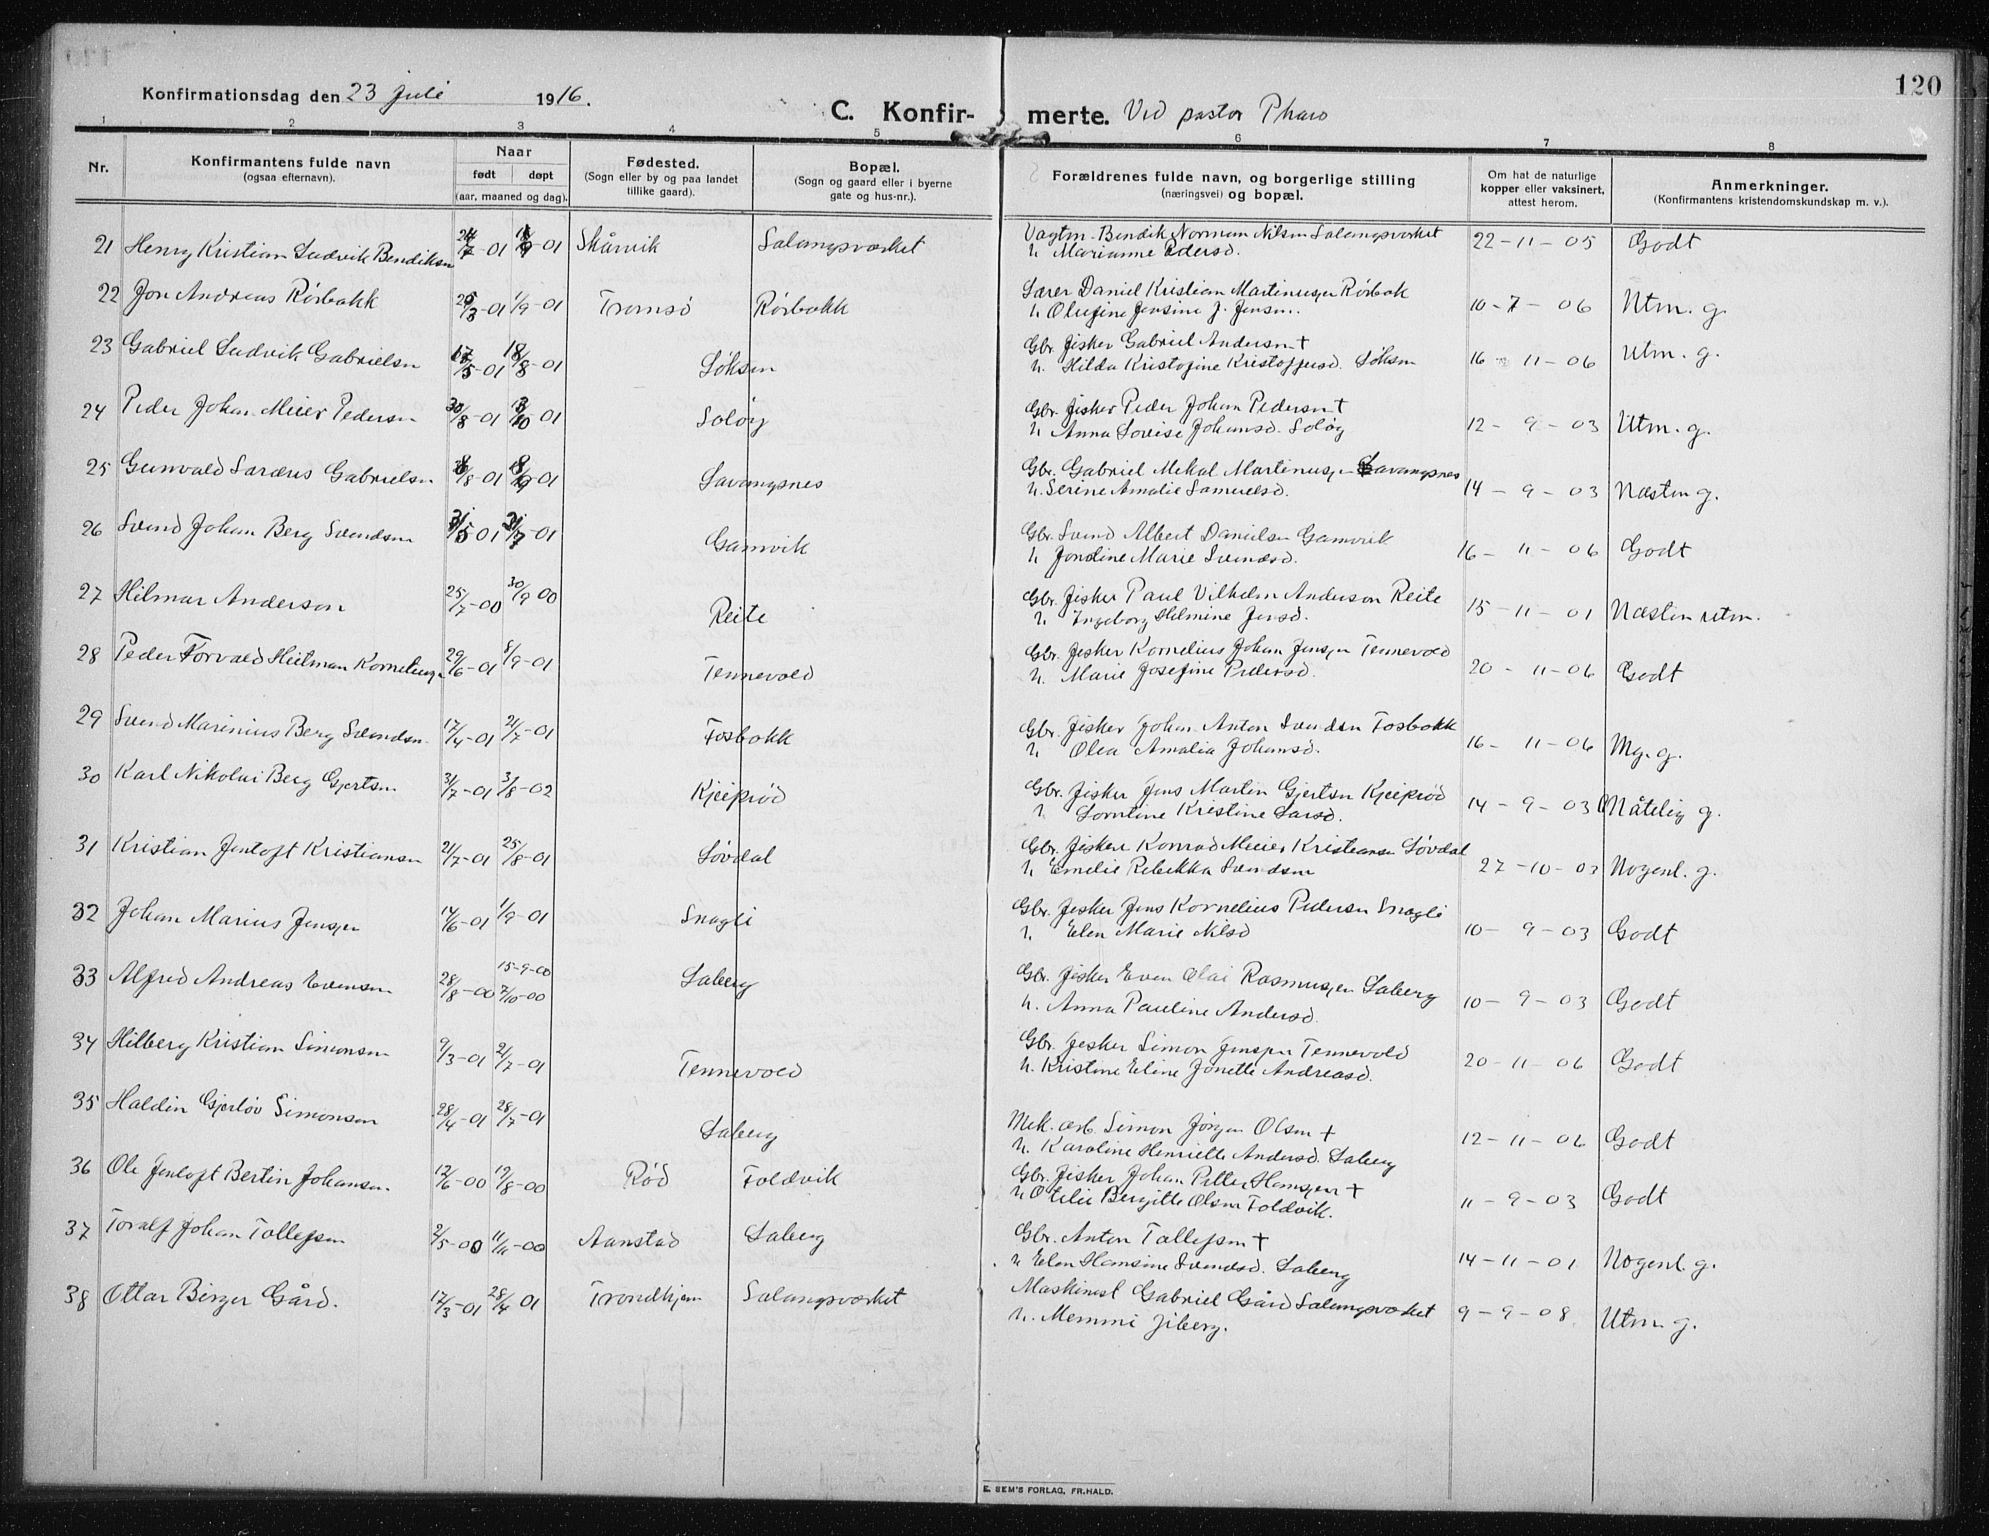 120
Konfirmationsdag den 23 juli 1916.
C. Konfirmerte. Ved pastor Pharo
1 2 3 4 5 6 7 8
Nr.
Konfirmantens fulde navn
(ogsaa efternavn).
Naar
født døpt
(aar, maaned og dag).
Fødested.
(Sogn eller by og paa landet
tillike gaard).
Bopæl.
(Sogn og gaard eller i byerne
gate og hus-nr.).
Forældrenes fulde navn, og borgerlige stilling
(næringsvei) og bopæl.
Om hat de naturlige
kopper eller vaksinert,
attest herom.
Anmerkninger.
(Konfirmantens kristendomskundskap m. v.).
21 Henry Kristian Ludvik Bendiksn 24/7-01 -01 Skårvik Salangsverket Vagtm. Bendik Norman Nilsen Salangsverket 22-11-05 Godt
h. Marianne Pedersd.
22 Jon Andreas Rörbakk 25/3-01 1/9-01 Tromsö Rörbakk Lærer Daniel Kristian Martinussen Rörbak 10-7-06 Utm. g.
h. Olufine Jensine J. Jensen.
23 Gabriel Ludvik Gabrielsn 17/5-01 18/8-01 Löksen Gbr. fisker Gabriel Andersn † 16-11-06 Utm. g.
h. Hilda Kristofine Kristoffersd. Löksen
24 Peder Johan Meier Pedersn 30/8-01 13/10-01 Soløy Gbr. fisker Peder Johan Pedersn † 12-9-03 Utm. g.
h. Anna Lovise Johansd. Soløy
25 Gunvald Laræus Gabrielsn 8/8-01 8/9-01 Lavangsnes Gbr. Gabriel Mekal Martinussen Lavangsnes 14-9-03 Næsten g.
h. Serine Amalie Samuelsd.
26 Svend Johan Berg Svendsen 31/5-01 21/7-01 Gamvik Gbr. Svend Albert Danielsen Gamvik 16-11-06 Godt
h. Jondine Marie Svendsd.
27 Hilmar Anderson 25/7-00 30/9 00 Reite Gbr. fisker Paul Vilhelm Anderson Reite 15-11-01 Næsten utm.
h. Ingeborg Helmine Jensd.
28 Peder Torvald Heitman Korneliussn 29/6-01 8/9-01 Tennevold Gbr. fisker Kornelius Johan Jensen Tennevold 20-11-06 Godt
h. Marie Josefine Pedersd.
29 Svend Marinius Berg Svendsn. 17/4-01 21/7-01 Fosbakk Gbr. fisker Johan Anton Svendsen Fosbakk 16-11-06 Mg. g.
h. Olea Amalia Johansd.
30 Karl Nikolai Berg Gjertsn 31/7-01 3/8-02 Kjeiprød Gbr. fisker Jens Martin Gjertsen Kjeiprød 14-9-03 Måtelig g.
h. Lorntine Kristine Larsd.
31 Kristian Jentoft Kristiansn 21/7-01 25/8-01 Løvdal Gbr. fisker Konrad Meier Kristiansn Løvdal 27-10-03 Nogenl. g.
h. Emelie Rebekka Svendsn
32 Johan Marius Jensen 14/6-01 1/9-01 Snagli Gbr. fisker Jens Kornelius Pedersen Snagli 10-9-03 Godt
h. Elen Marie Nilsd
33 Alfred Andreas Evensen 28/8-00 15-9-00 7/10-00 Laberg Gbr. fisker Even Olai Rasmussen Laberg 10-9-03 Godt
h. Anna Pauline Andersd.
34 Hilberg Kristian Simonsen 9/3-01 21/7-01 Tennevold Gbr. fisker Simon Jensen Tennevold 20-11-06 Godt
h. Kristine Eline Jonette Andreasd.
35 Haldin Gjerløv Simonsen 28/4-01 28/7-01 Laberg Mek. arb. Simon Jörgen Olsen † 12-11-06 Godt
h. Karoline Henriette Andersd. Laberg
36 Ole Jentoft Bertin Johansen 12/6-00 19/8-00 Rød Foldvik Gbr. fisker Johan Petter Hansen † 11-9-03 Godt
h. Otelie Bergitte Olsen Foldvik.
37 Toralf Johan Tollefsen 2/5-00 11/11-00 Aanstad Laberg Gbr. Anton Tollefsen † 14-11-01 Nogenl. g.
h. Elen Hansine Svendsd. Laberg
38 Ottar Birger Gård. 12/3-01 28/4 01 Trondhjem Salangsverket Maskinist Gabriel Gård Salangsverket 9-9-08 Utm. g.
h. Memmi Fiberg.
E. SEM'S FORLAG, FR.HALD.